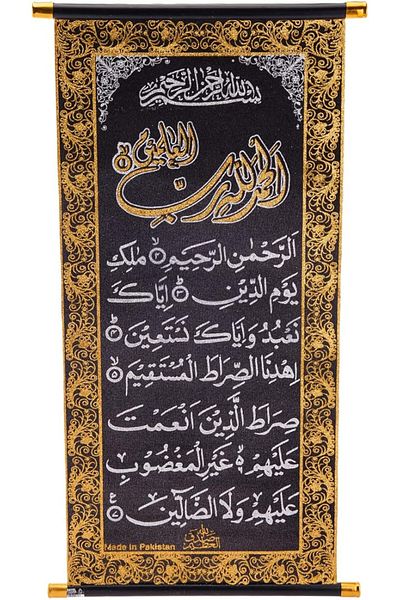 بسم الله الرحمن الرحيم
الحمد لله رب العالمين ۝
الرَّحْمٰنِ الرَّحِيْمِ ۝ مٰلِكِ
يَوْمِ الدِّيْنِ ۝٣ اِيَّاكَ
نَعْبُدُ وَاِيَّاكَ نَسْتَعِيْنُ ۝٤
اِهْدِنَا الصِّرَاطَ الْمُسْتَقِيْمَ ۝٥
صِرَاطَ الَّذِيْنَ اَنْعَمْتَ
عَلَيْهِمْ ۝ غَيْرِ الْمَغْضُوْبِ
عَلَيْهِمْ وَلَا الضَّآلِّيْنَ ۝٧
صدق الله العظيم
Made in Pakistan